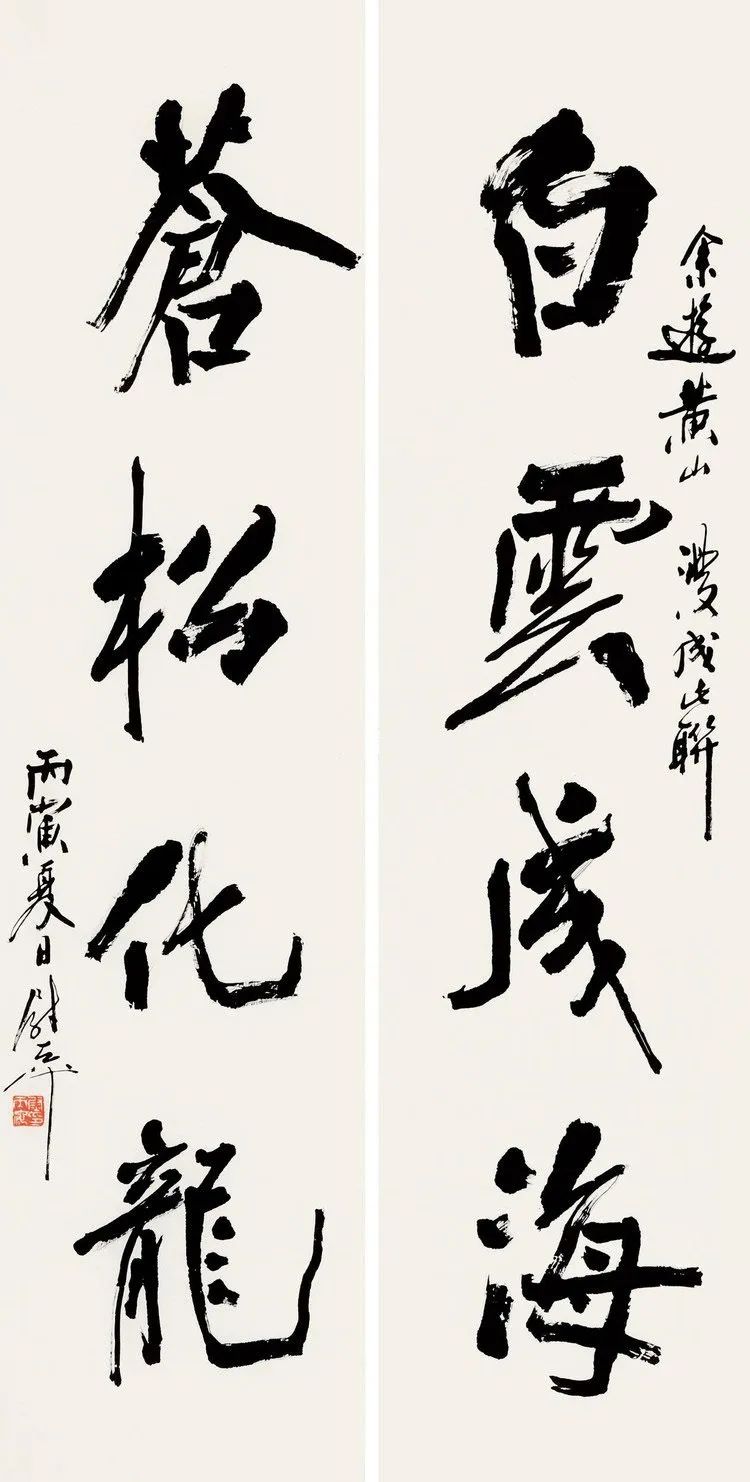 余遊黃山 漫成此聯
白雲成海
蒼松化龍
丙寅夏日尉